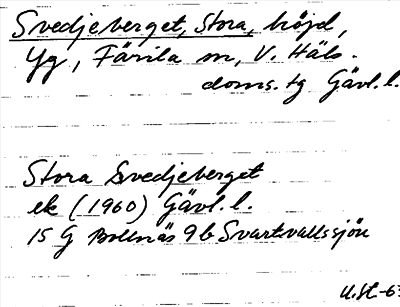 Svedjeberget, Stora, höjd,
Yg, Färila sn, V. Häls.
doms. tg Gävl. l.
Stora Svedjeberget
ek (1960) Gävl. l.
15 G Bollnäs 9 b Svartvallssjön